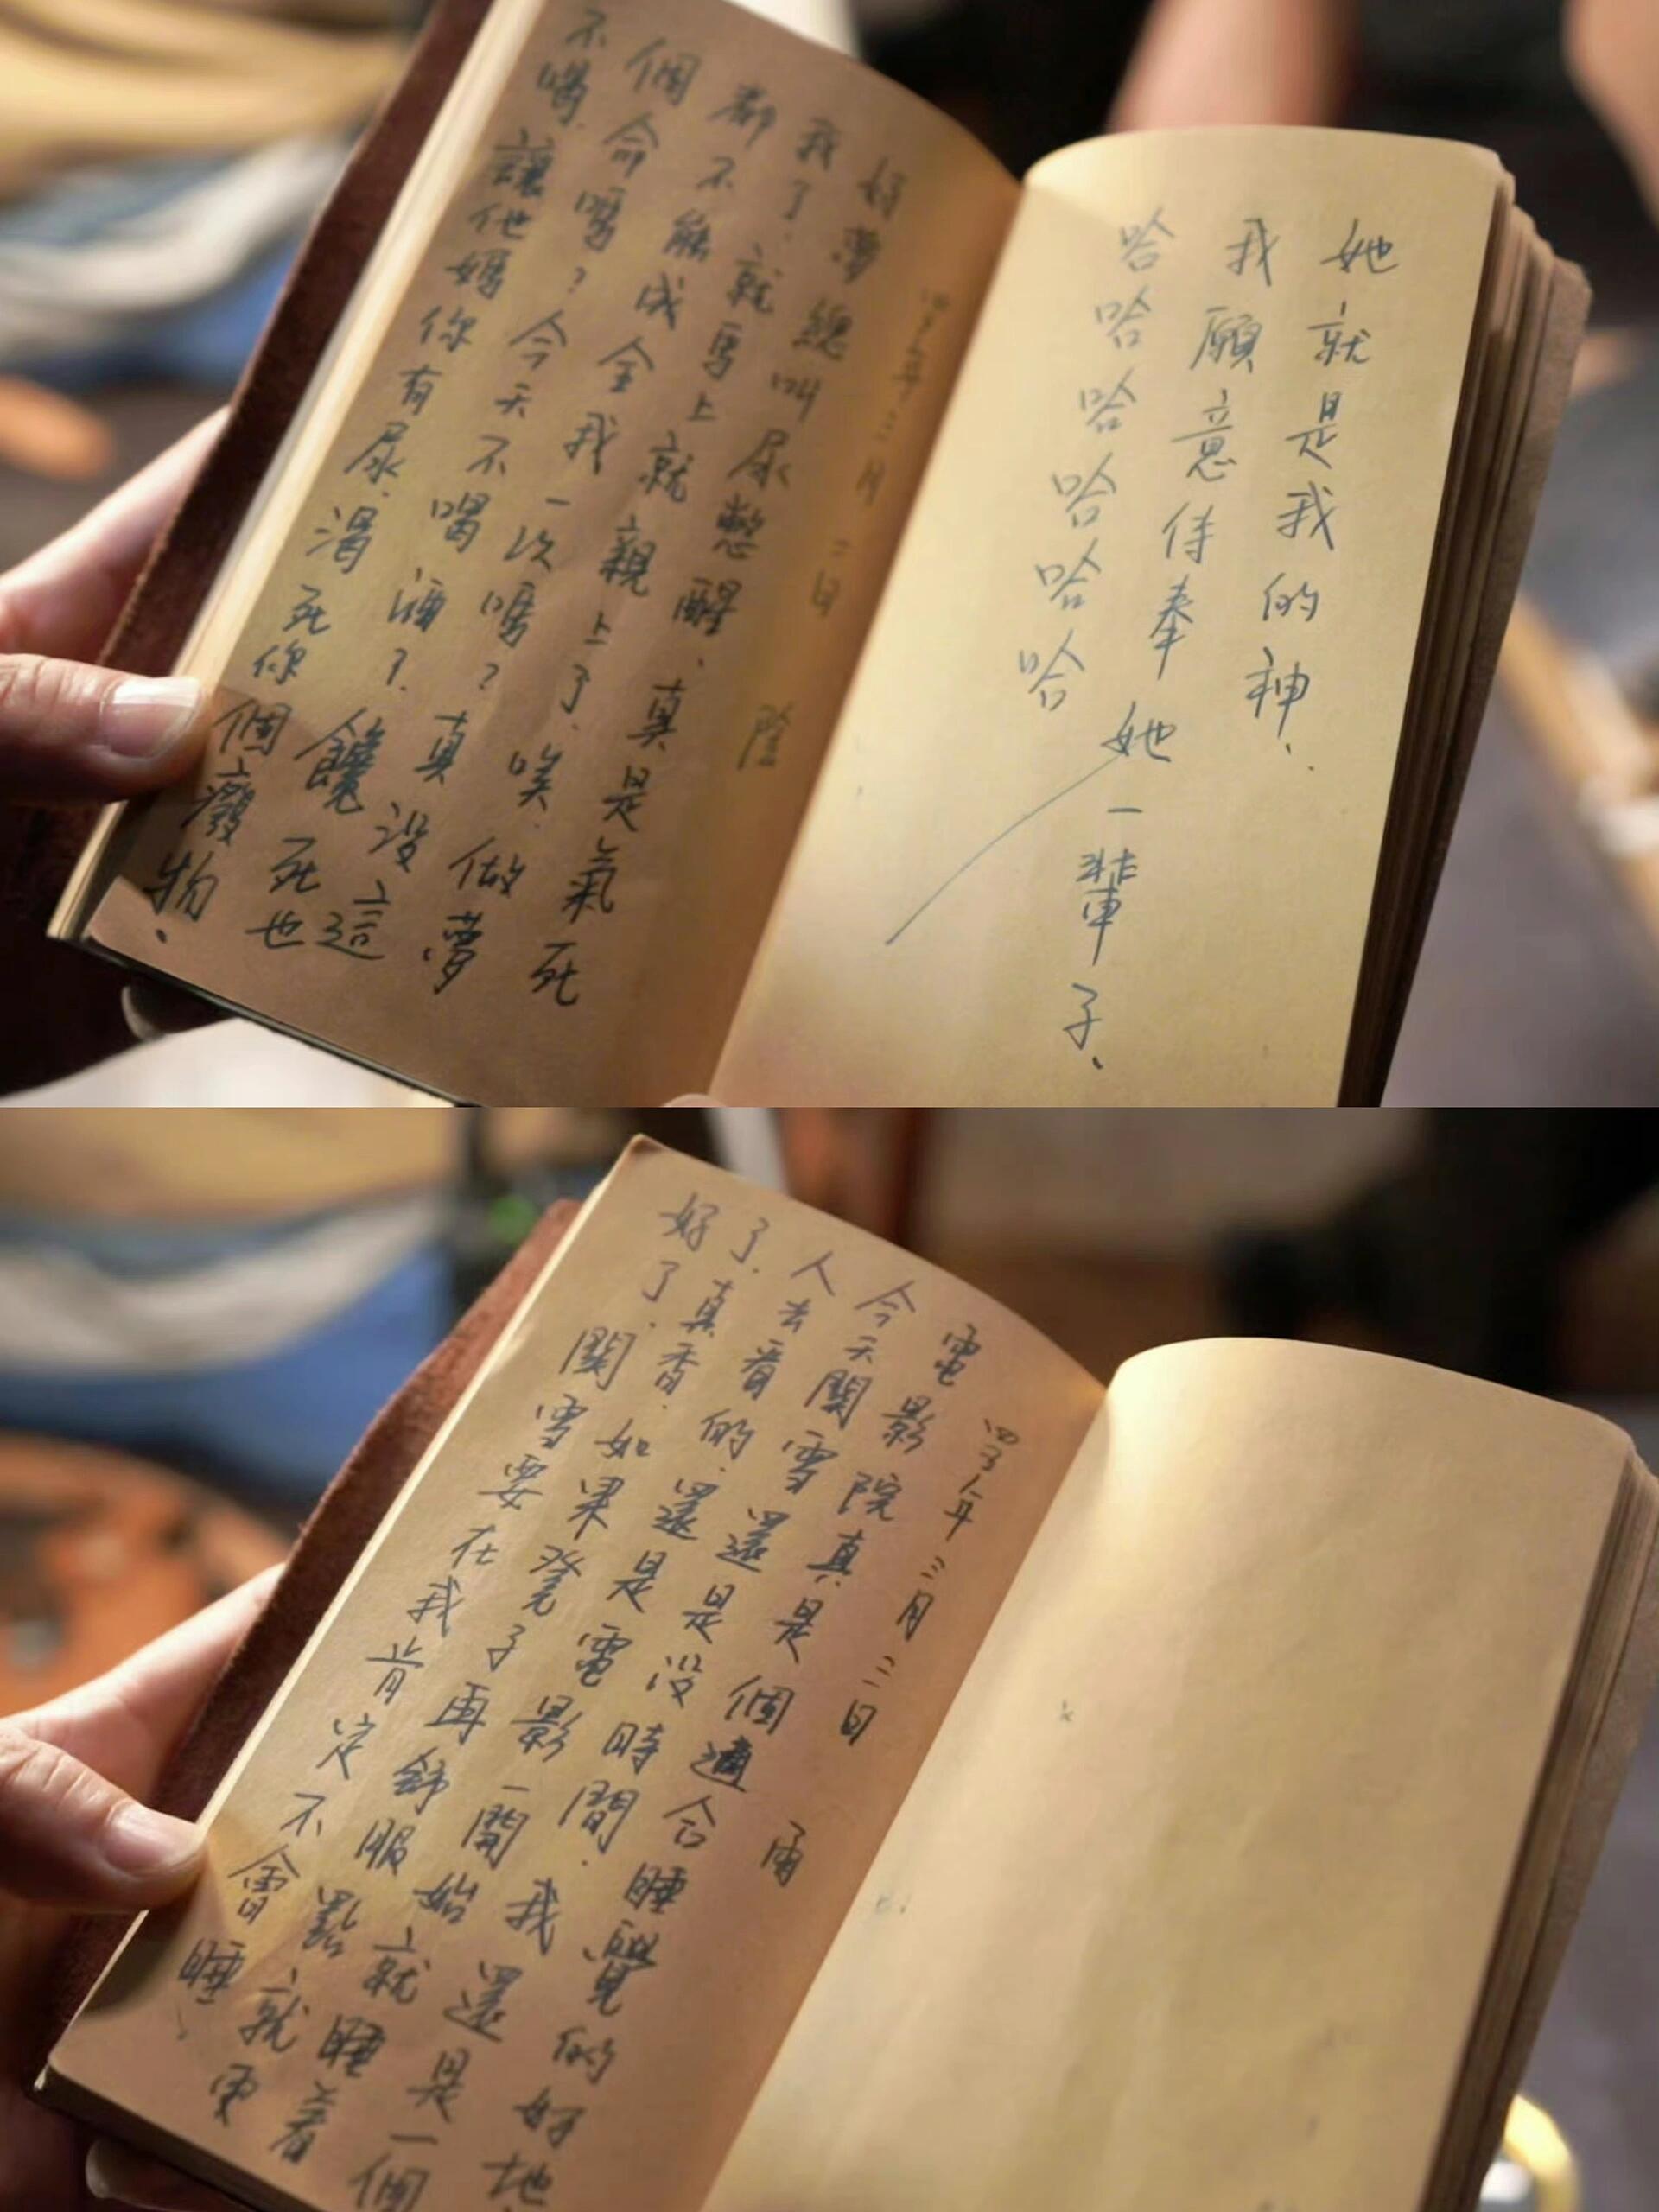 她就是我的神、
我願意侍奉她一輩子、
哈哈哈哈哈哈
年三月二日 陰
好夢總叫尿憋醒、真是氣死
我了、就馬上就親上了、唉、做夢
都不能成全我一次嗎?真沒這
個命嗎?今天不喝酒?饞死也
不喝、讓他媽你有尿、渴死你個廢物、
年三月三日 雨
電影院真是個適合睡覺的好地、
今天關雪還是沒時間、我還是一個
人去看的、還是電影一開始就睡着
了、真香、如果凳子再舒服點就更
好了、關雪要在我肯定不會睡、